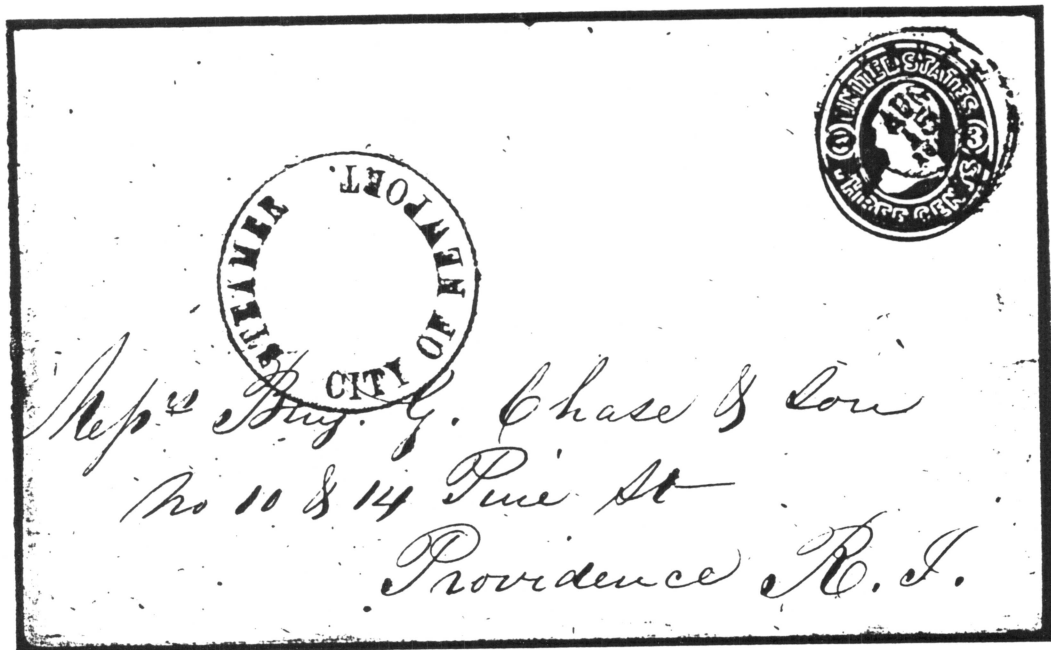 UNITED STATES
3 3
THREE CENTS
STEAMER
CITY OF NEWPORT.
Messrs Benj. G. Chase & Son
No 10 & 14 Pine St
Providence R. I.